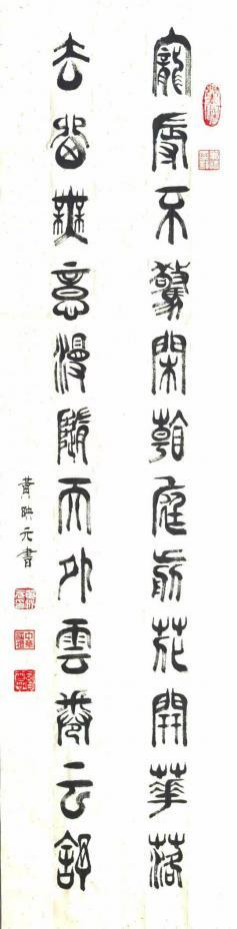 寵辱不驚閑看庭前花開華落
去留無意漫隨天外雲卷云舒
黃映元書